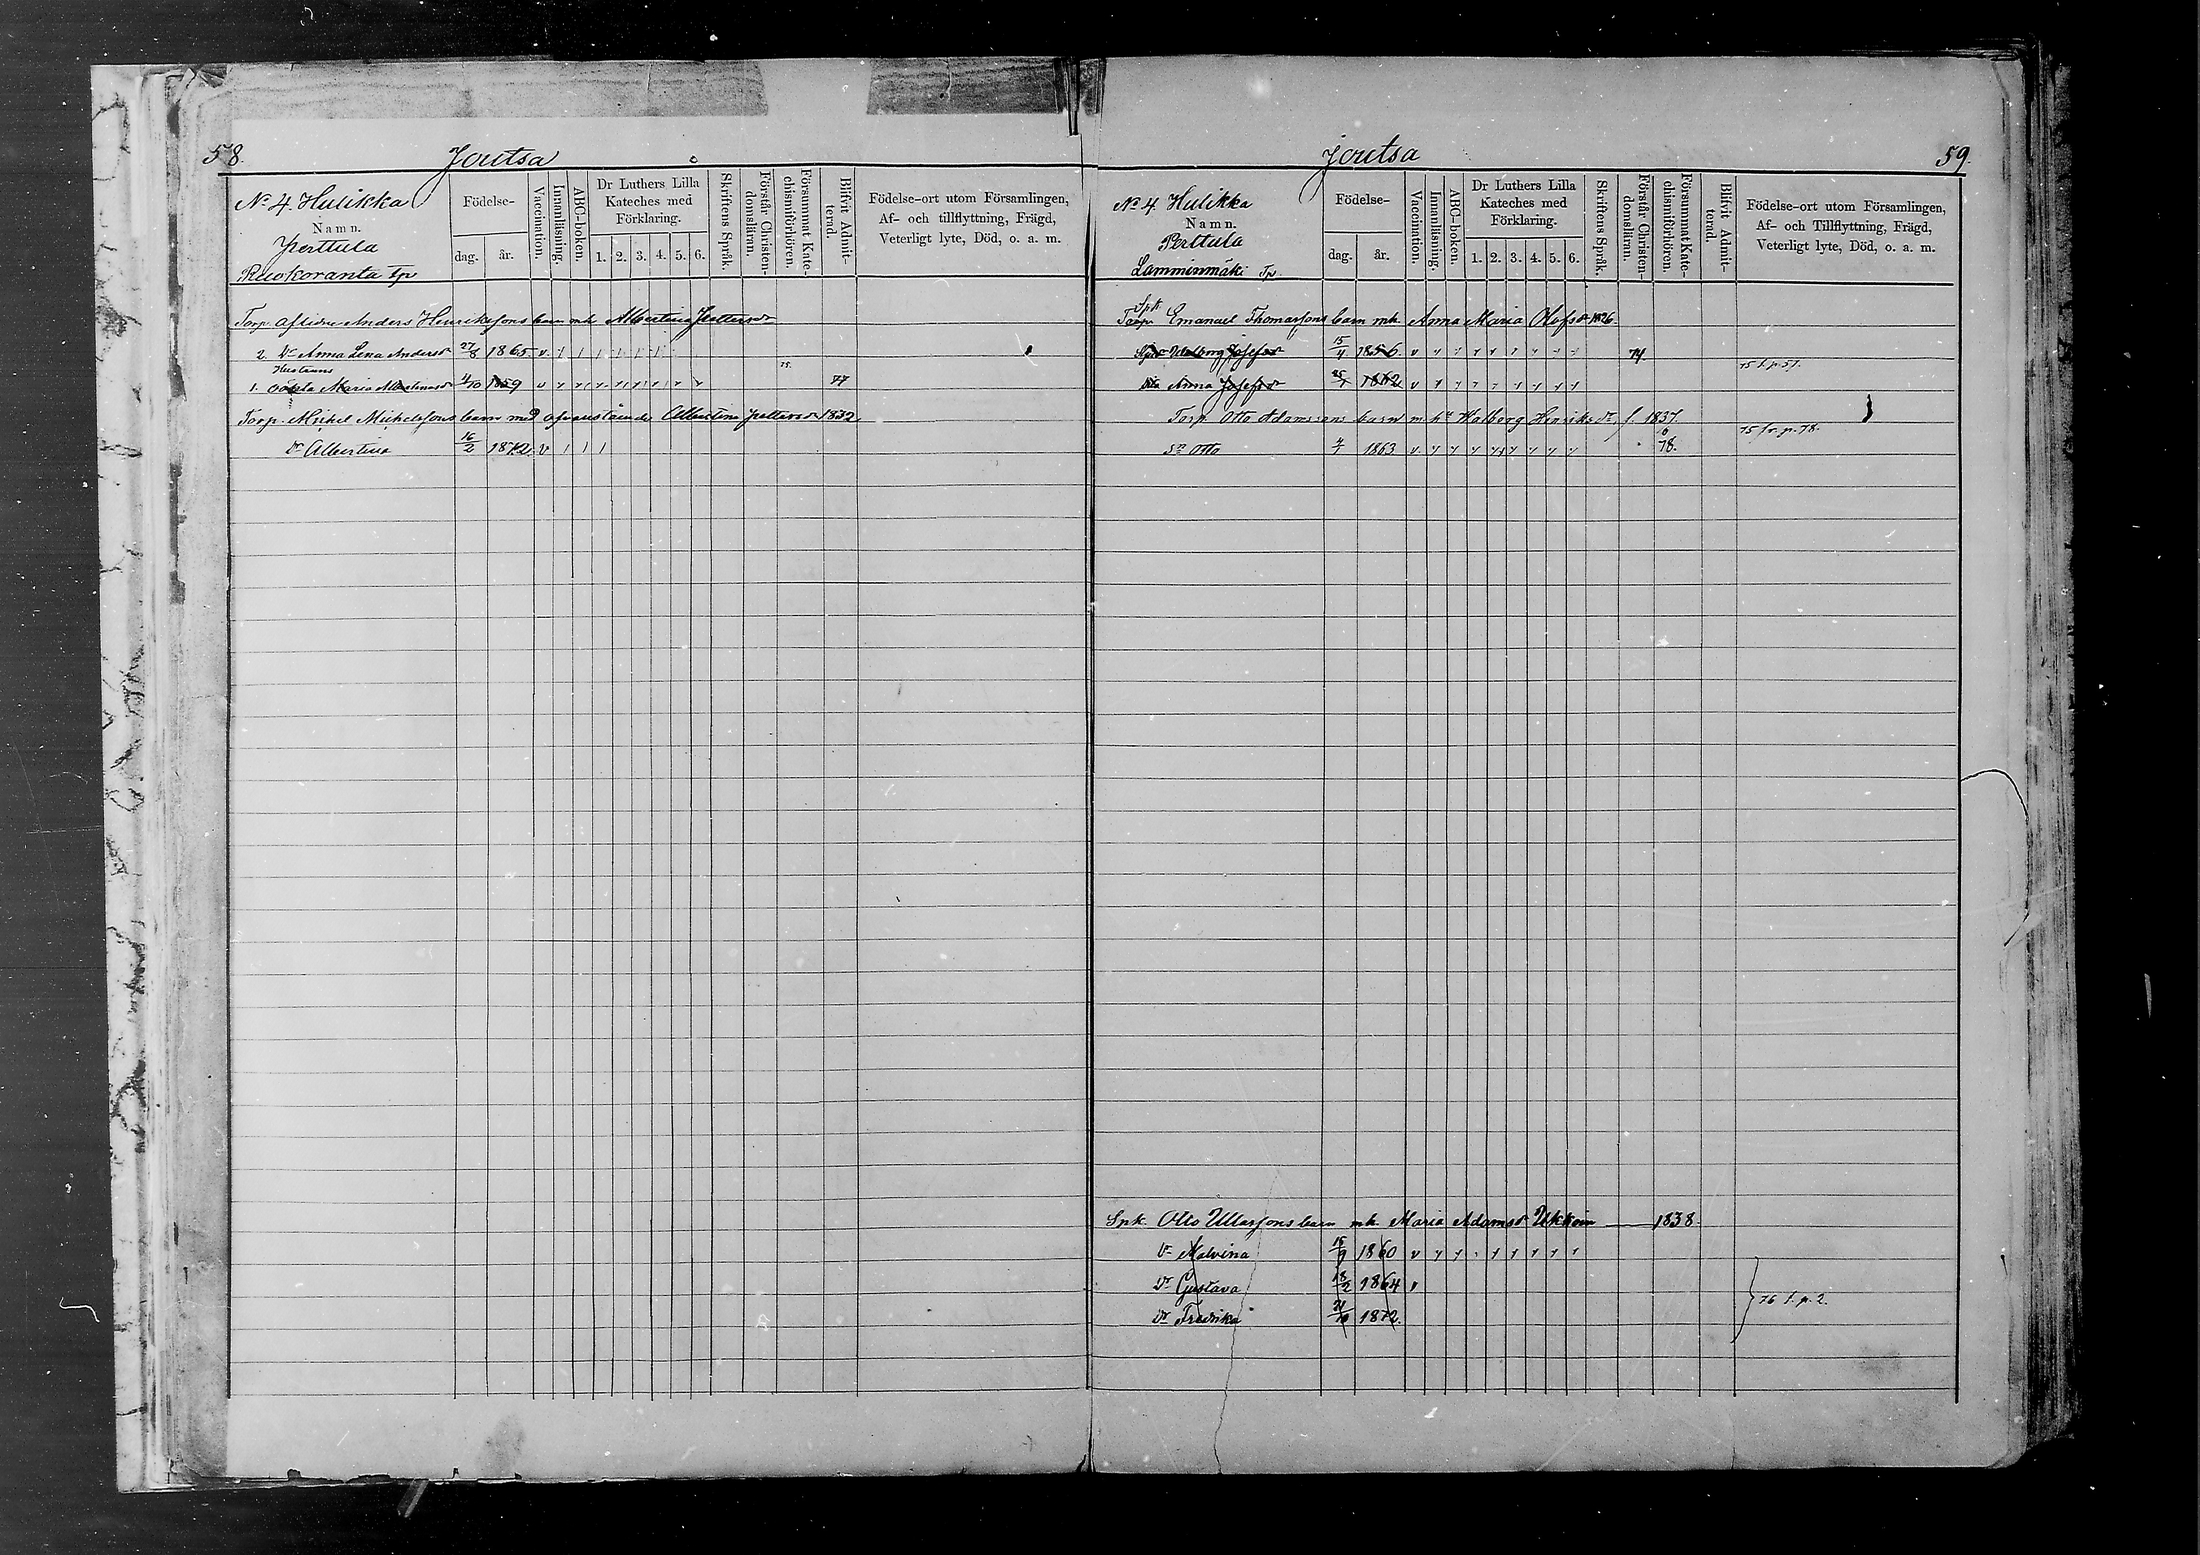 58.
Joutsa
No 4. Hulikka
Namn.
Perttula
Ruokoranta Tp
Födelse-
dag.
år.
Vaccination.
Innanläsning.
ABC-boken.
Dr Luthers Lilla
Kateches med
Förklaring.
1. 2. 3. 4. 5. 6.
Skriftens Språk.
Förstår Christen-
domsläran.
Försummat Kate-
chismiförhören.
Blifvit Admit-
terad.
Födelse-ort utom Församlingen,
Af- och tillflyttning, Frägd,
Veterligt lyte, Död, o. a. m.
Torp. aflidne Anders Henrikssons barn mh Albertina Pettersdr
2. Dr Anna Lena Andersdr 27/8 1865 v
Hustruns
75.
1. oäkta Maria Albertinasdr 4/10 1859 v 77
Torp. Mikel Mickelssons barn med ofvanstående Albertina Pettersdr 1832
Dr Albertina 16/2 1872 v
Joutsa
59.
No 4. Hulikka
Namn.
Perttula
Lamminmäki Tp.
Födelse-
dag.
år.
Vaccination.
Innanläsning.
ABC-boken.
Dr Luthers Lilla
Kateches med
Förklaring.
1. 2. 3. 4. 5. 6.
Skriftens Språk.
Förstår Christen-
domsläran.
Försummat Kate-
chismiförhören.
Blifvit Admit-
terad.
Födelse-ort utom Församlingen,
Af- och Tillflyttning, Frägd,
Veterligt lyte, Död, o. a. m.
Torp. Emanuel Thomassons barn mh Anna Maria Olofsdr 1826
Walborg Josefsdr 15/4 1856 v 74
75 t. p. 51.
Anna Josefsdr 25/1 1862 v
Torp. Otto Adamssons barn m. hu Walborg Henriksdr, f. 1837.
75 fr. p. 78.
Sn Otto 4/1 1863 v 78.
Spk. Otto Ullassons barn mh Maria Adamsdr Ukkoin 1838
Dr Malvina 15/9 1860 v
Dr Gustava 18/2 1864
Dr Fredrika 21/10 1872.
76 t. p. 2.